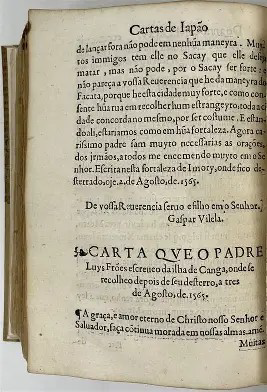 Cartas de Iapão
de lançar fora não pode em nenhũa maneyra. Muy
tos immigos tem elle no Sacay que elle deseja
matar, mas não pode, por o Sacay ser forte: e
não pareça a vossa Reuerencia que he da maneyra de
Facata, porque he esta cidade muy forte, e como con-
sente hũa rua em recolher hum estrangeyro, toda a ci
dade concorda no mesmo, por ser costume. E estan-
do ali, estariamos como em hũa fortaleza. Agora ca-
rissimo padre sam muyto necessarias as orações,
dos jrmãos, a todos me encomendo muyto em o Se
nhor. Escrita nesta fortaleza de Imory, onde fico de-
sterrado, oje .2. de Agosto, de .1565.
De vossa Reuerencia seruo e filho em o Senhor,
Gaspar Vilela.
CARTA QVE O PADRE
Luys Frões escreueo da ilha de Canga, onde se
recolheo depois de seu desterro, a tres
de Agosto, de .1565.
¶ A graça, e amor eterno de Christo nosso Senhor e
Saluador, faça cõtinua morada em nossas almas. amẽ.
Muitas